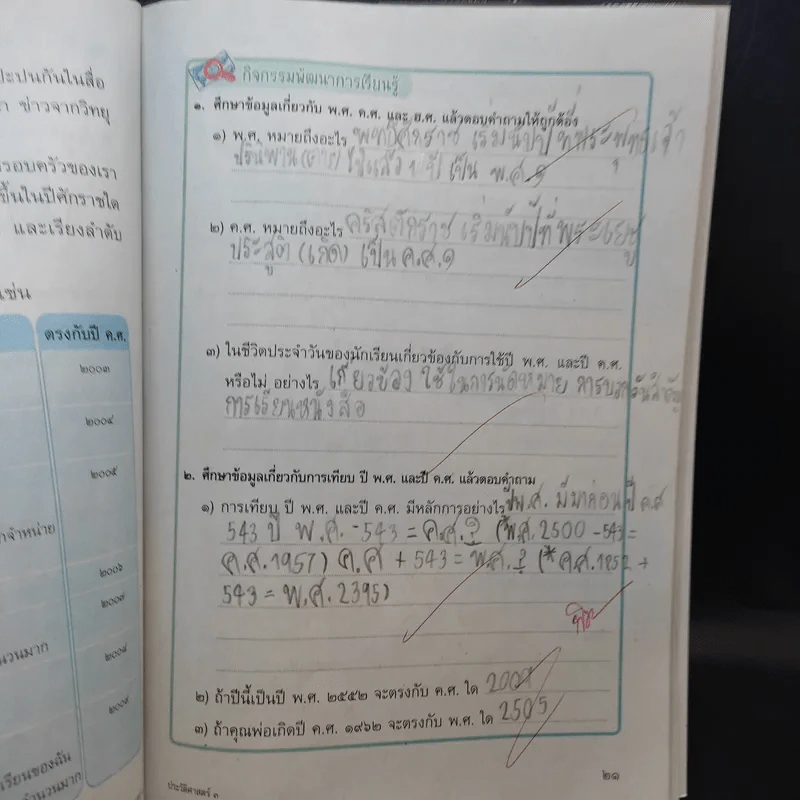 ปะปนกันในสื่อ
ข่าวจากวิทยุ
รอบครัวของเรา
ขึ้นในปีศักราชใด
และเรียงลำดับ
เช่น
ตรงกับปี ค.ศ.
๒๐๐๓
๒๐๐๔
๒๐๐๕
กจำหน่าย
๒๐๐๖
๒๐๐๗
นวนมาก
๒๐๐๘
๒๐๐๙
เรียนของฉัน
จำนวนมาก
กิจกรรมพัฒนาการเรียนรู้
๑. ศึกษาข้อมูลเกี่ยวกับ พ.ศ. ค.ศ. และ ฮ.ศ. แล้วตอบคำถามให้ถูกต้อง
๑) พ.ศ. หมายถึงอะไร พุทธศักราช เริ่มนับปีที่พระพุทธเจ้า
ปรินิพพาน (ตาย) ไปแล้ว 1 ปี เป็น พ.ศ. ๑
๒) ค.ศ. หมายถึงอะไร คริสตักราช เริ่มนับปีที่พระเยซู
ประสูติ (เกิด) เป็น ค.ศ.๑
๓) ในชีวิตประจำวันของนักเรียนเกี่ยวข้องกับการใช้ปี พ.ศ. และปี ค.ศ.
หรือไม่ อย่างไร เกี่ยวข้อง ใช้ในการนัดหมาย การบอกวันสำคัญ
การเรียนหนังสือ
๒. ศึกษาข้อมูลเกี่ยวกับการเทียบ ปี พ.ศ. และปี ค.ศ. แล้วตอบคำถาม
๑) การเทียบ ปี พ.ศ. และปี ค.ศ. มีหลักการอย่างไร ปีพ.ศ. มีมาก่อนปี ค.ศ
543 ปี พ.ศ. -543 = ค.ศ.? (*พ.ศ. 2500 -543=
ค.ศ.1957) ค.ศ + 543 = พ.ศ.? (* ค.ศ.1852 +
543 = พ.ศ. 2395)
๒) ถ้าปีนี้เป็นปี พ.ศ. ๒๕๕๒ จะตรงกับ ค.ศ. ใด 2009
๓) ถ้าคุณพ่อเกิดปี ค.ศ. ๑๙๖๒ จะตรงกับ พ.ศ. ใด 2505
ประวัติศาสตร์ ๓
๒๑